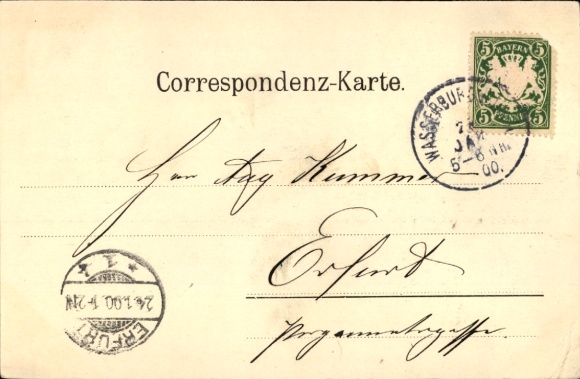 Correspondenz-Karte.
5 BAYERN 5
5 PFENNIG 5
WASSERBURG
JAN
5-6 NM.
00.
Herrn Aug Kummer
Erfurt
Pergamentergasse.
ERFURT
24.1.00. 1-2N
* 1 4